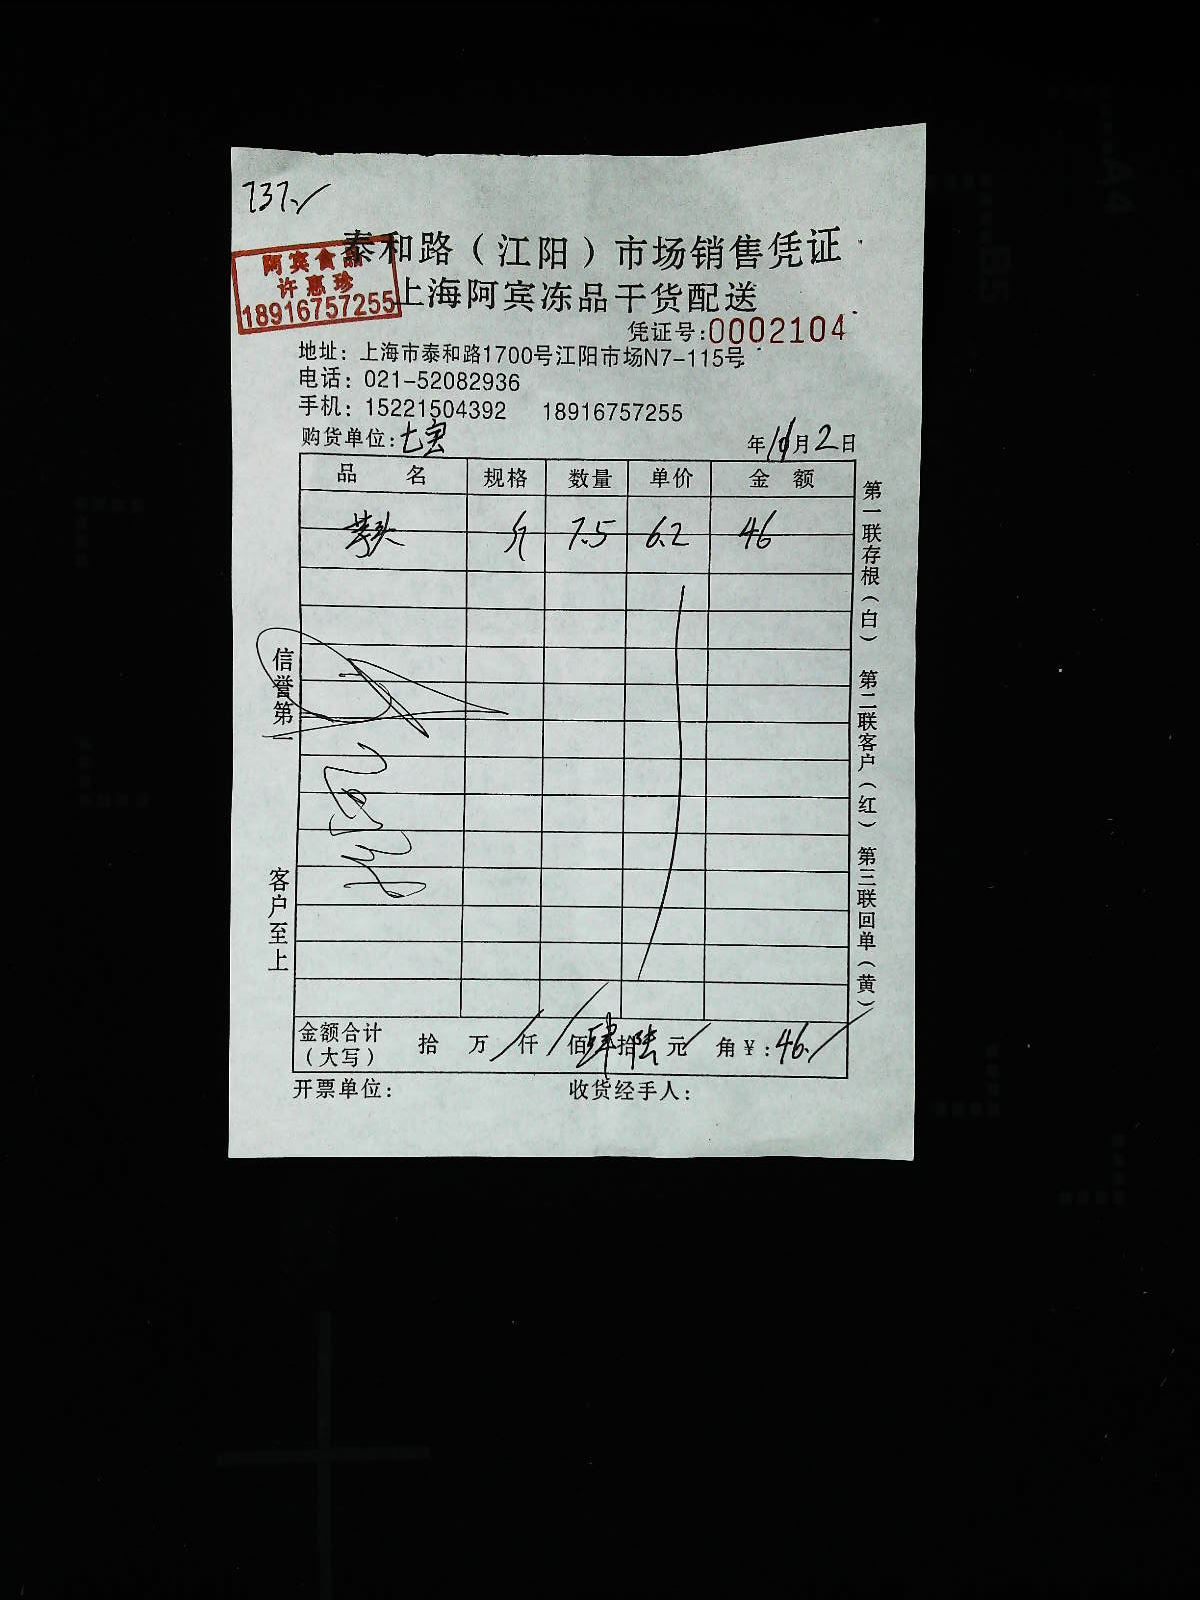 737.
泰和路（江阳）市场销售凭证
阿宾食品
许惠珍
18916757255
上海阿宾冻品干货配送
凭证号:0002104
地址：上海市泰和路1700号江阳市场N7-115号
电话：021-52082936
手机：15221504392 18916757255
购货单位:七宝 年 月2日
品名 规格 数量 单价 金额
芋头 斤 7.5 6.2 46
第一联存根（白） 第二联客户（红） 第三联回单（黄）
信誉第一
客户至上
金额合计（大写） 拾 万 仟 佰肆拾陆元 角¥:46.
开票单位: 收货经手人: